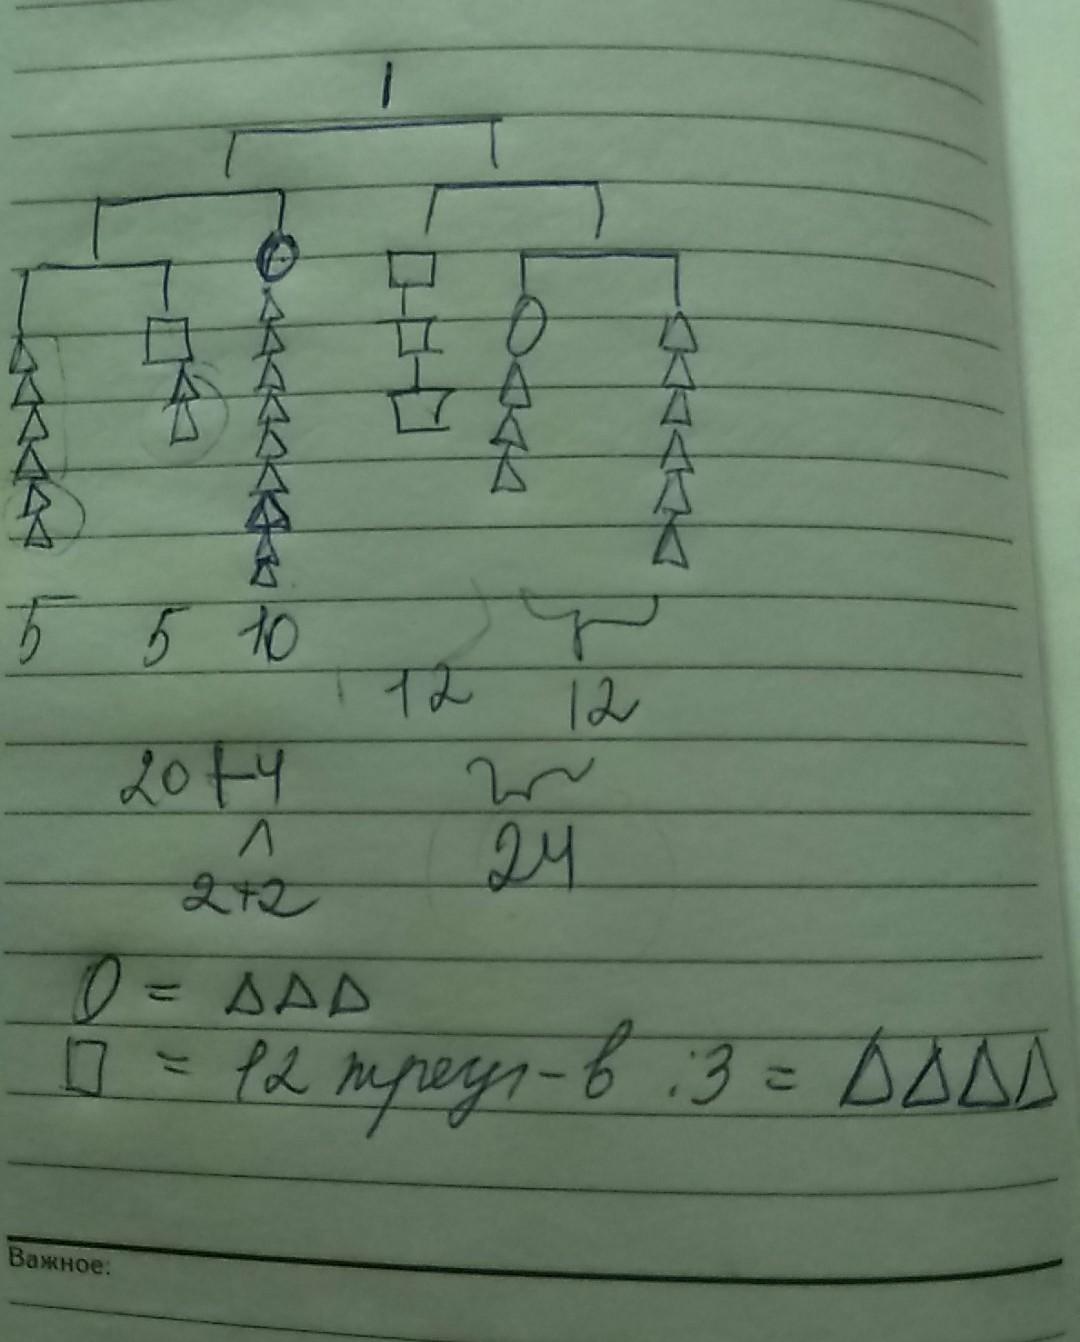 1
5 5 10
12 12
20+4
24
2+2
0 = ΔΔΔ
□ = 12 треуг-в :3 = ΔΔΔΔ
Важное: